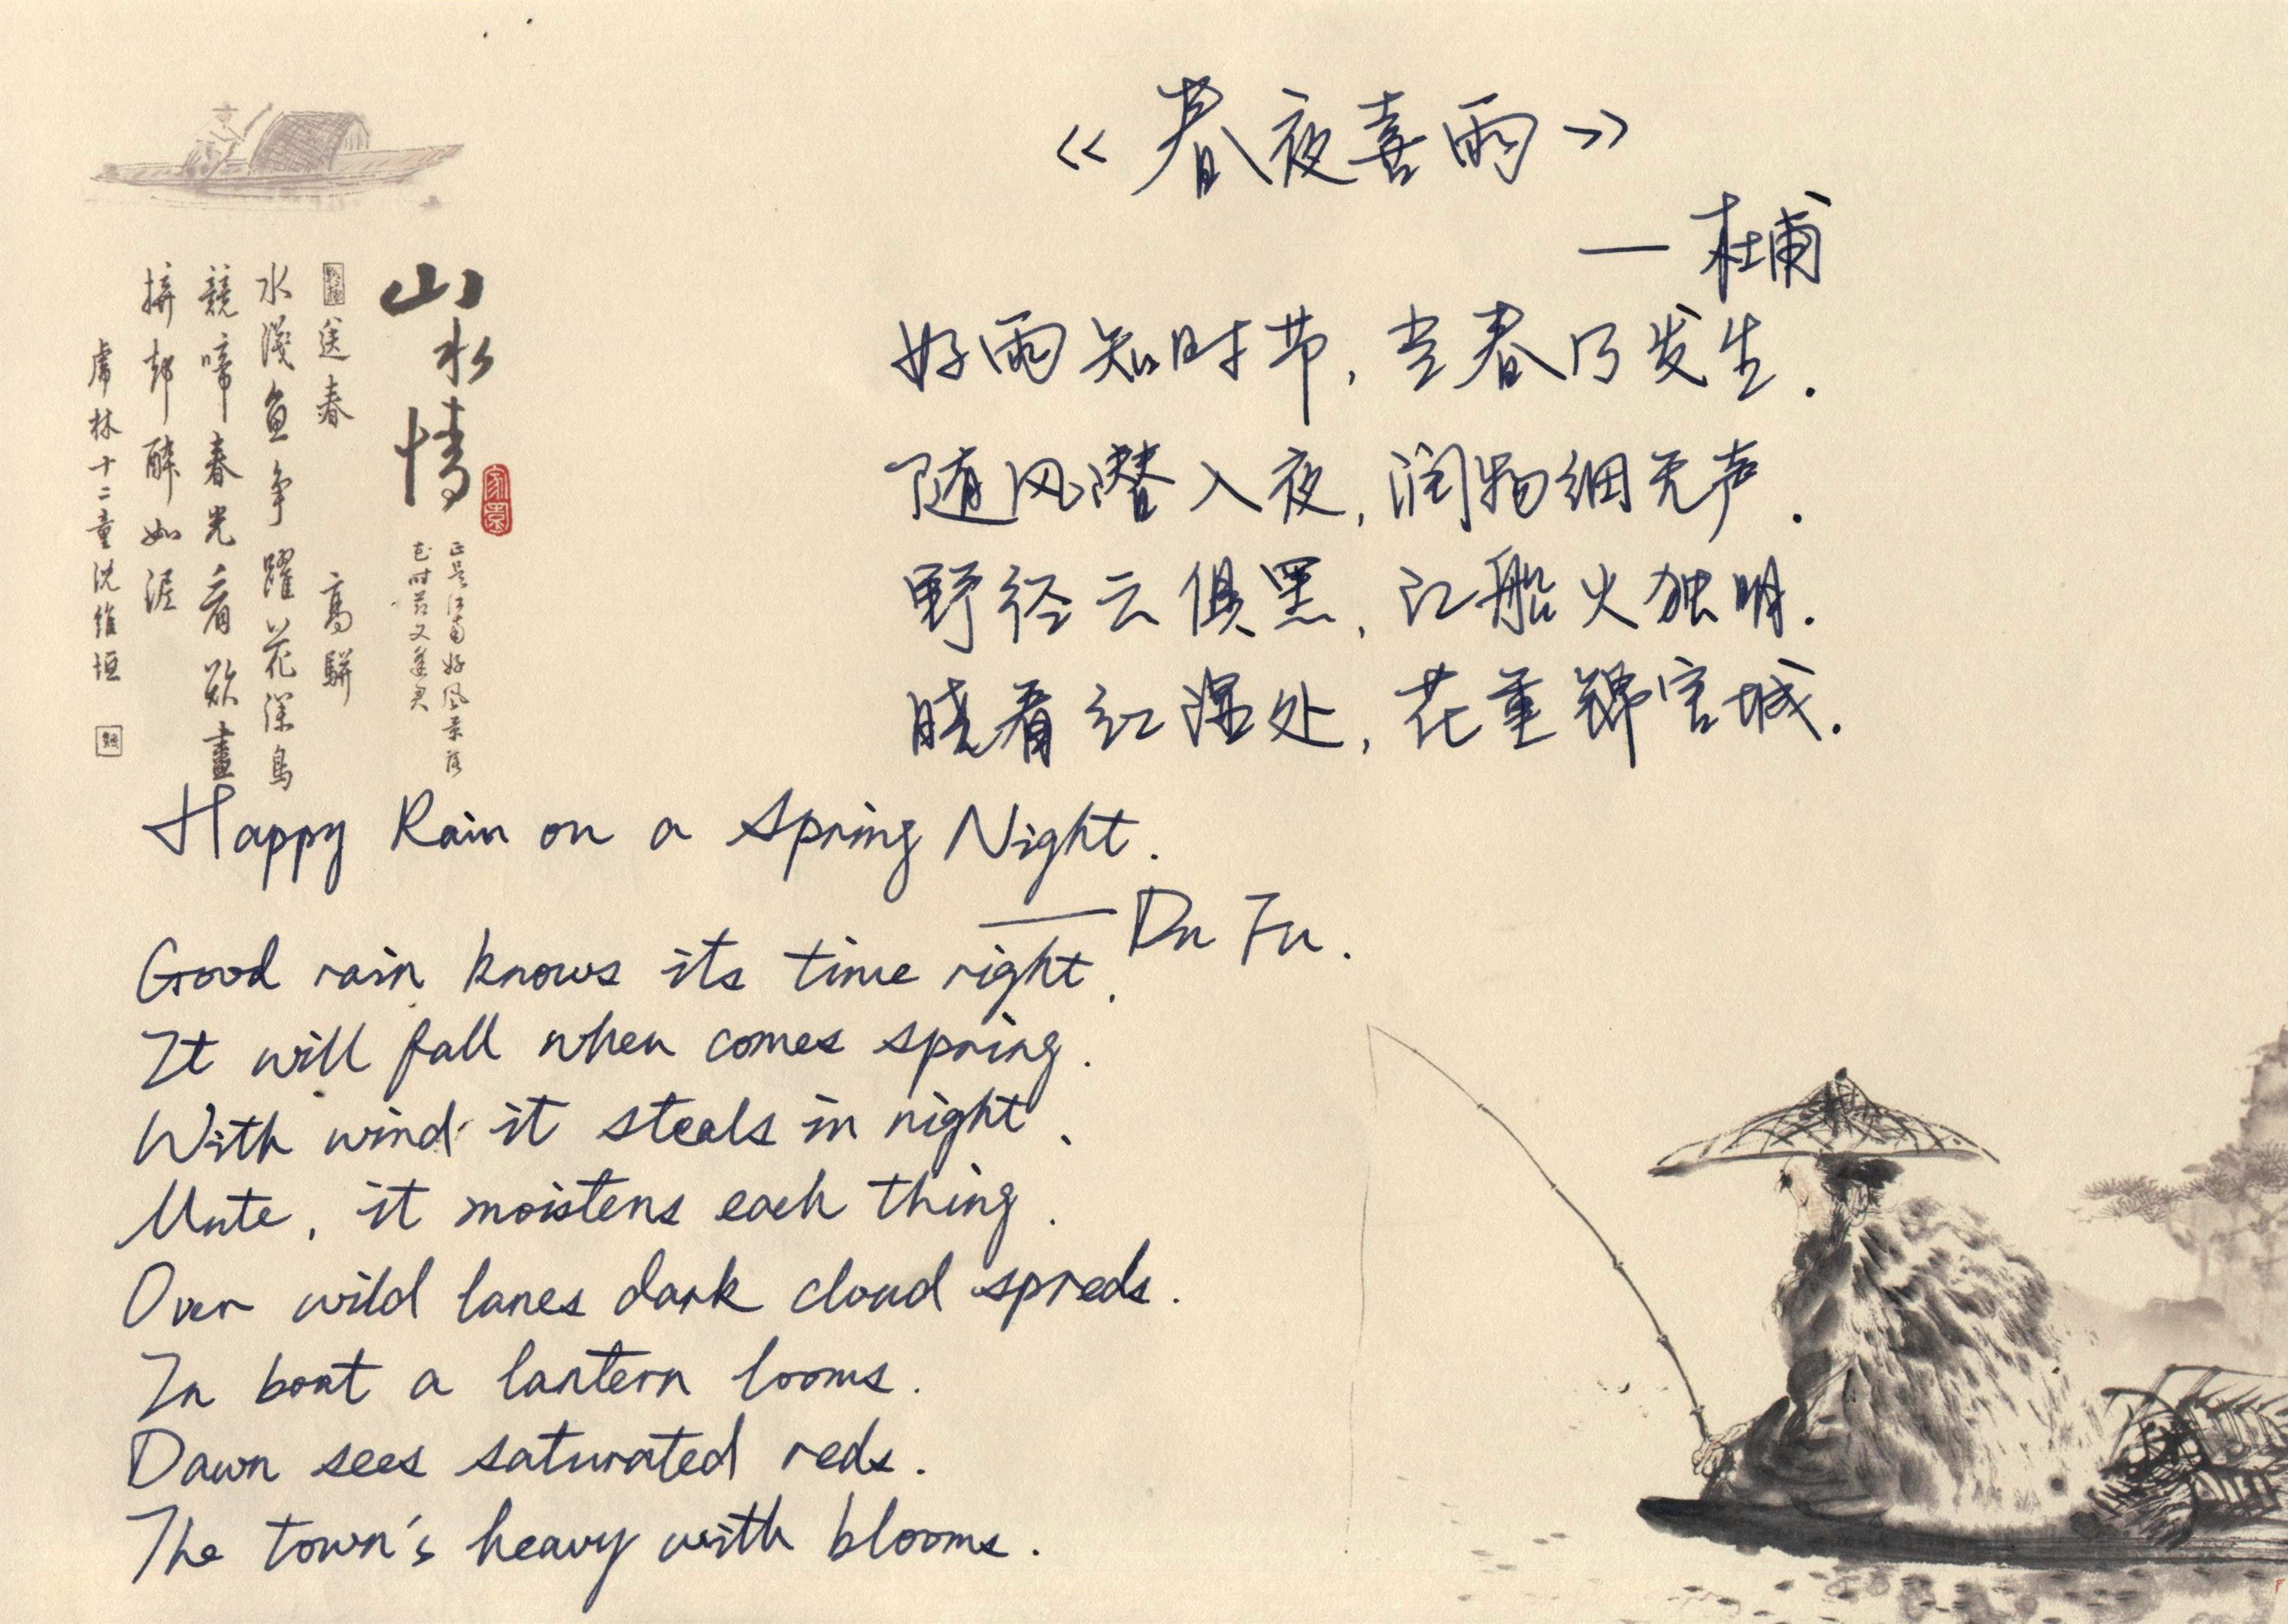 《春夜喜雨》
— 杜甫
好雨知时节,当春乃发生.
随风潜入夜,润物细无声.
野径云俱黑,江船火独明.
晓看红湿处,花重锦官城.
山水情
家园
正是江南好风景落
花时节又逢君
送春 高駢
水淺魚争躍花深鳥
競啼春光看欲盡
拚却醉如泥
虞林十二童沈維垣
Happy Rain on a Spring Night.
— Du Fu.
Good rain knows its time right.
It will fall when comes spring.
With wind it steals in night.
Mute, it moistens each thing.
Over wild lanes dark cloud spreds.
In boat a lantern looms.
Dawn sees saturated reds.
The town's heavy with blooms.